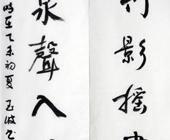 竹影搖
泉聲入
時在乙未初夏玉波